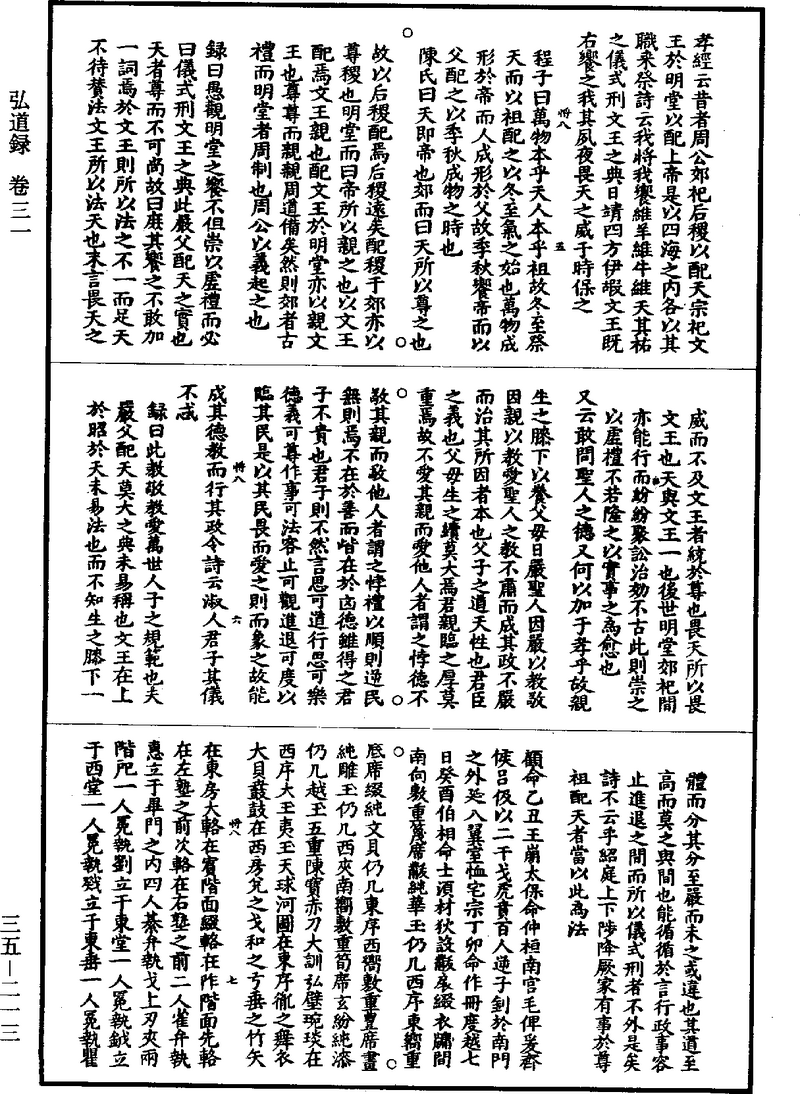 弘道録　卷三一
孝經云昔者周公郊祀后稷以配天宗祀文
王於明堂以配上帝是以四海之內各以其
職來祭詩云我將我饗維羊維牛維天其祐
之儀式刑文王之典日靖四方伊嘏文王旣
右饗之我其夙夜畏天之威于時保之
將八　五
程子曰萬物本乎天人本乎祖故冬至祭
天而以祖配之以冬至氣之始也萬物成
形於帝而人成形於父故季秋饗帝而以
父配之以季秋成物之時也
陳氏曰天即帝也郊而曰天所以尊之也
故以后稷配焉后稷遠矣配稷于郊亦以
尊稷也明堂而曰帝所以親之也以文王
配焉文王親也配文王於明堂亦以親文
王也尊尊而親親周道備矣然則郊者古
禮而明堂者周制也周公以義起之也
録曰愚觀明堂之饗不但崇以虛禮而必
曰儀式刑文王之典此嚴父配天之實也
天者尊而不可尚故曰庶其饗之不敢加
一詞焉於文王則所以法之不一而足天
不待贊法文王所以法天也末言畏天之
威而不及文王者統於尊也畏天所以畏
文王也天與文王一也後世明堂郊祀間
亦能行而紛紛聚訟治効不古此則崇之
以虛禮不若隆之以實事之為愈也
又云敢問聖人之德又何以加于孝乎故親
生之膝下以養父母日嚴聖人因嚴以教敬
因親以教愛聖人之教不肅而成其政不嚴
而治其所因者本也父子之道天性也君臣
之義也父母生之續莫大焉君親臨之厚莫
重焉故不愛其親而愛他人者謂之悖德不
敬其親而敬他人者謂之悖禮以順則逆民
無則焉不在於善而皆在於凶德雖得之君
子不貴也君子則不然言思可道行思可樂
德義可尊作事可法容止可觀進退可度以
臨其民是以其民畏而愛之則而象之故能
將八　六
成其德教而行其政令詩云淑人君子其儀
不忒
録曰此教敬教愛萬世人子之規範也夫
嚴父配天莫大之典未易稱也文王在上
於昭於天未易法也而不知生之膝下一
體而分其分至嚴而未之或違也其道至
高而莫之與間也能循循於言行政事容
止進退之間而所以儀式刑者不外是矣
詩不云乎紹庭上下陟降厥家有事於尊
祖配天者當以此為法
顧命乙丑王崩太保命仲桓南宮毛俾爰齊
侯呂伋以二干戈虎賁百人逆子釗於南門
之外延入翼室恤宅宗丁卯命作冊度越七
日癸酉伯相命士須材狄設黼扆綴衣牖間
南向敷重篾席黼純華玉仍几西序東嚮重
底席綴純文貝仍几東序西嚮敷重豐席畫
純雕玉仍几西夾南嚮敷重筍席玄紛純漆
仍几越玉五重陳寶赤刀大訓弘璧琬琰在
西序大玉夷玉天球河圖在東序胤之舞衣
大貝鼖鼓在西房兌之戈和之弓垂之竹矢
將八　七
在東房大輅在賓階面綴輅在阼階面先輅
在左塾之前次輅在右塾之前二人雀弁執
惠立于畢門之内四人綦弁執戈上刃夾兩
階戺一人冕執劉立于東堂一人冕執鉞立
于西堂一人冕執戣立于東垂一人冕執瞿
三五—二一三